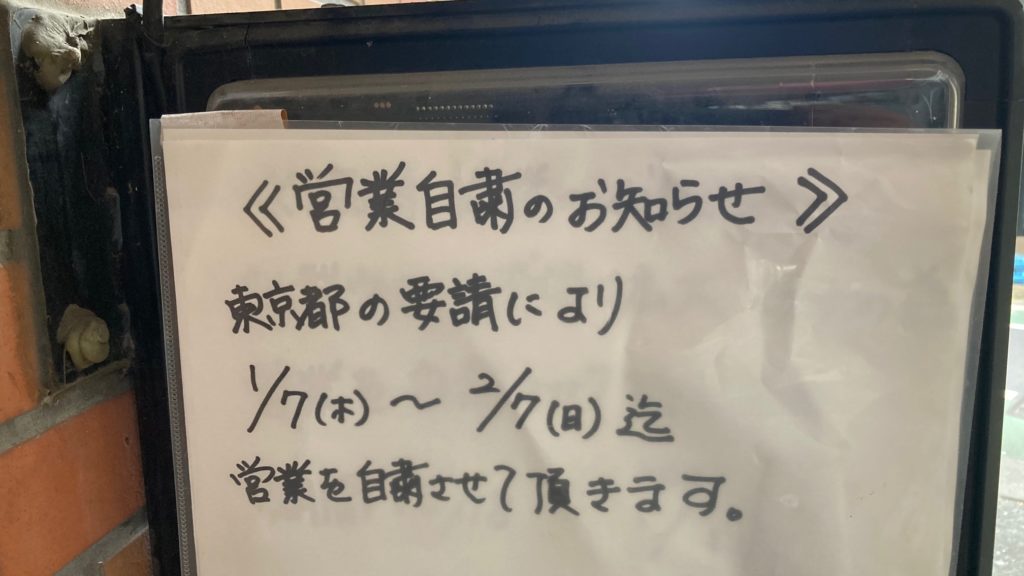 ≪営業自粛のお知らせ≫
東京都の要請により
1/7(木)～2/7(日)迄
営業を自粛させて頂きます。